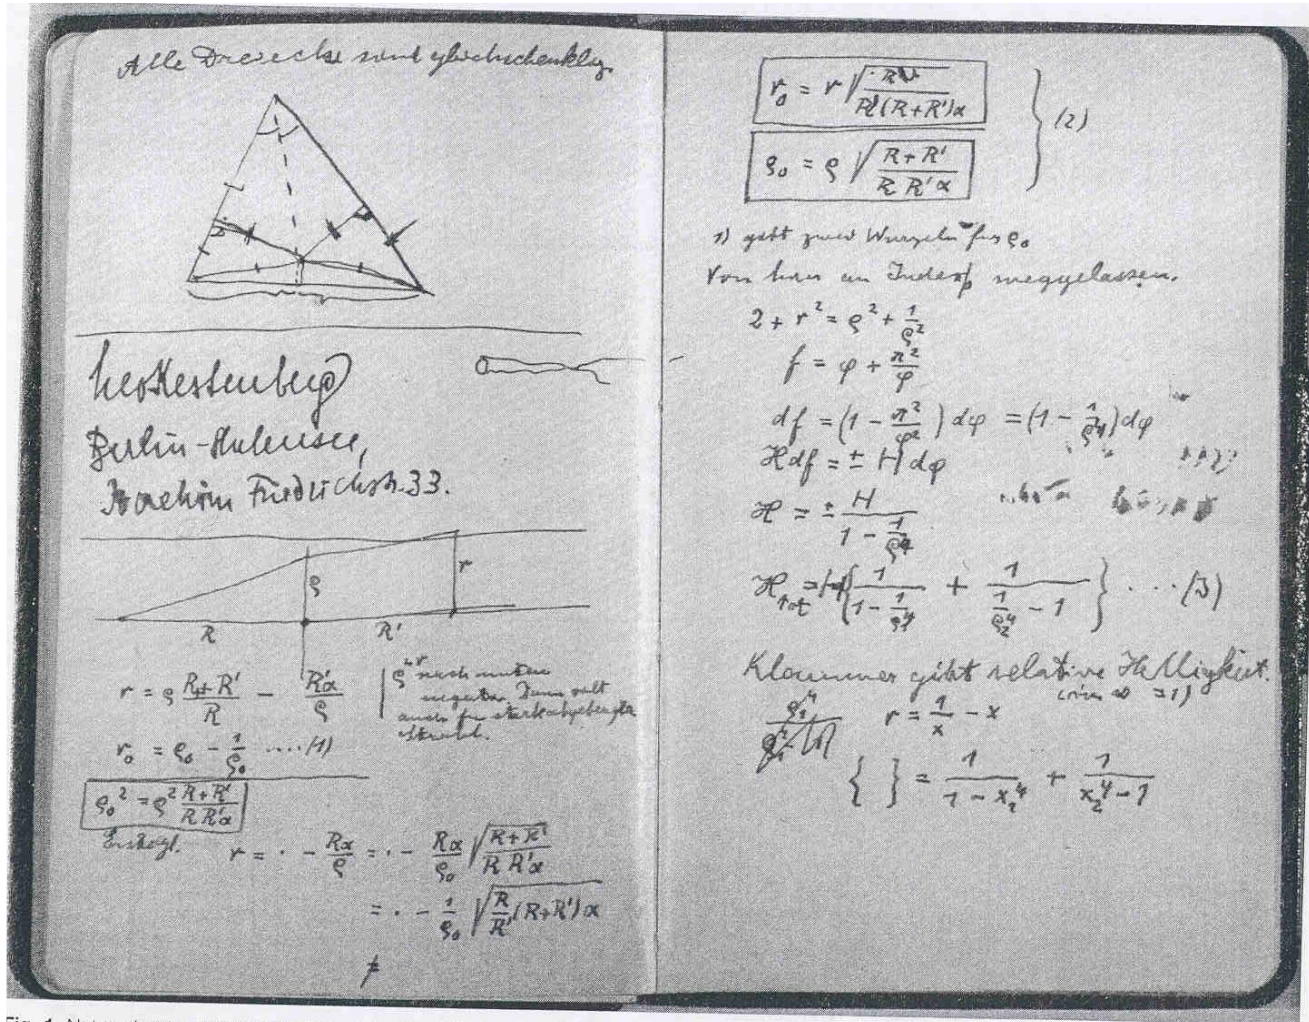 Alle Dreiecke sind gleichschenklig.
Leo Kestenberg
Berlin-Halensee,
Joachim Friedrichstr. 33.
ρ
r
R
R'
r = ρ (R+R')/R − R'α/ρ
ρ nach unten
negativ. Dann gilt
auch für stark abgebeugten
Strahl.
r₀ = ρ₀ − 1/ρ₀ ....(1)
ρ₀² = ρ² (R+R')/(R R'α)
r = · − Rα/ρ = · − Rα/ρ₀ √((R+R')/(R R'α))
= · − 1/ρ₀ √(R/R' (R+R')α)
≠
r₀ = r √(R/(R'(R+R')α))
ρ₀ = ρ √((R+R')/(R R'α))
(2)
1) gibt zwei Wurzeln für ρ₀
Von hier an Index weggelassen.
2 + r² = ρ² + 1/ρ²
f = φ + π²/φ
df = (1 − π²/φ²) dφ = (1 − 1/ρ⁴) dφ
ℋ df = ± H dφ
ℋ = ± H/(1 − 1/ρ⁴)
ℋ_tot = H { 1/(1 − 1/ρ₁⁴) + 1/(1/ρ₂⁴ − 1) } ....(3)
Klammer gibt relative Helligkeit.
= 1)
r = 1/x − x
{ } = 1/(1 − x₁⁴) + 1/(x₂⁴ − 1)